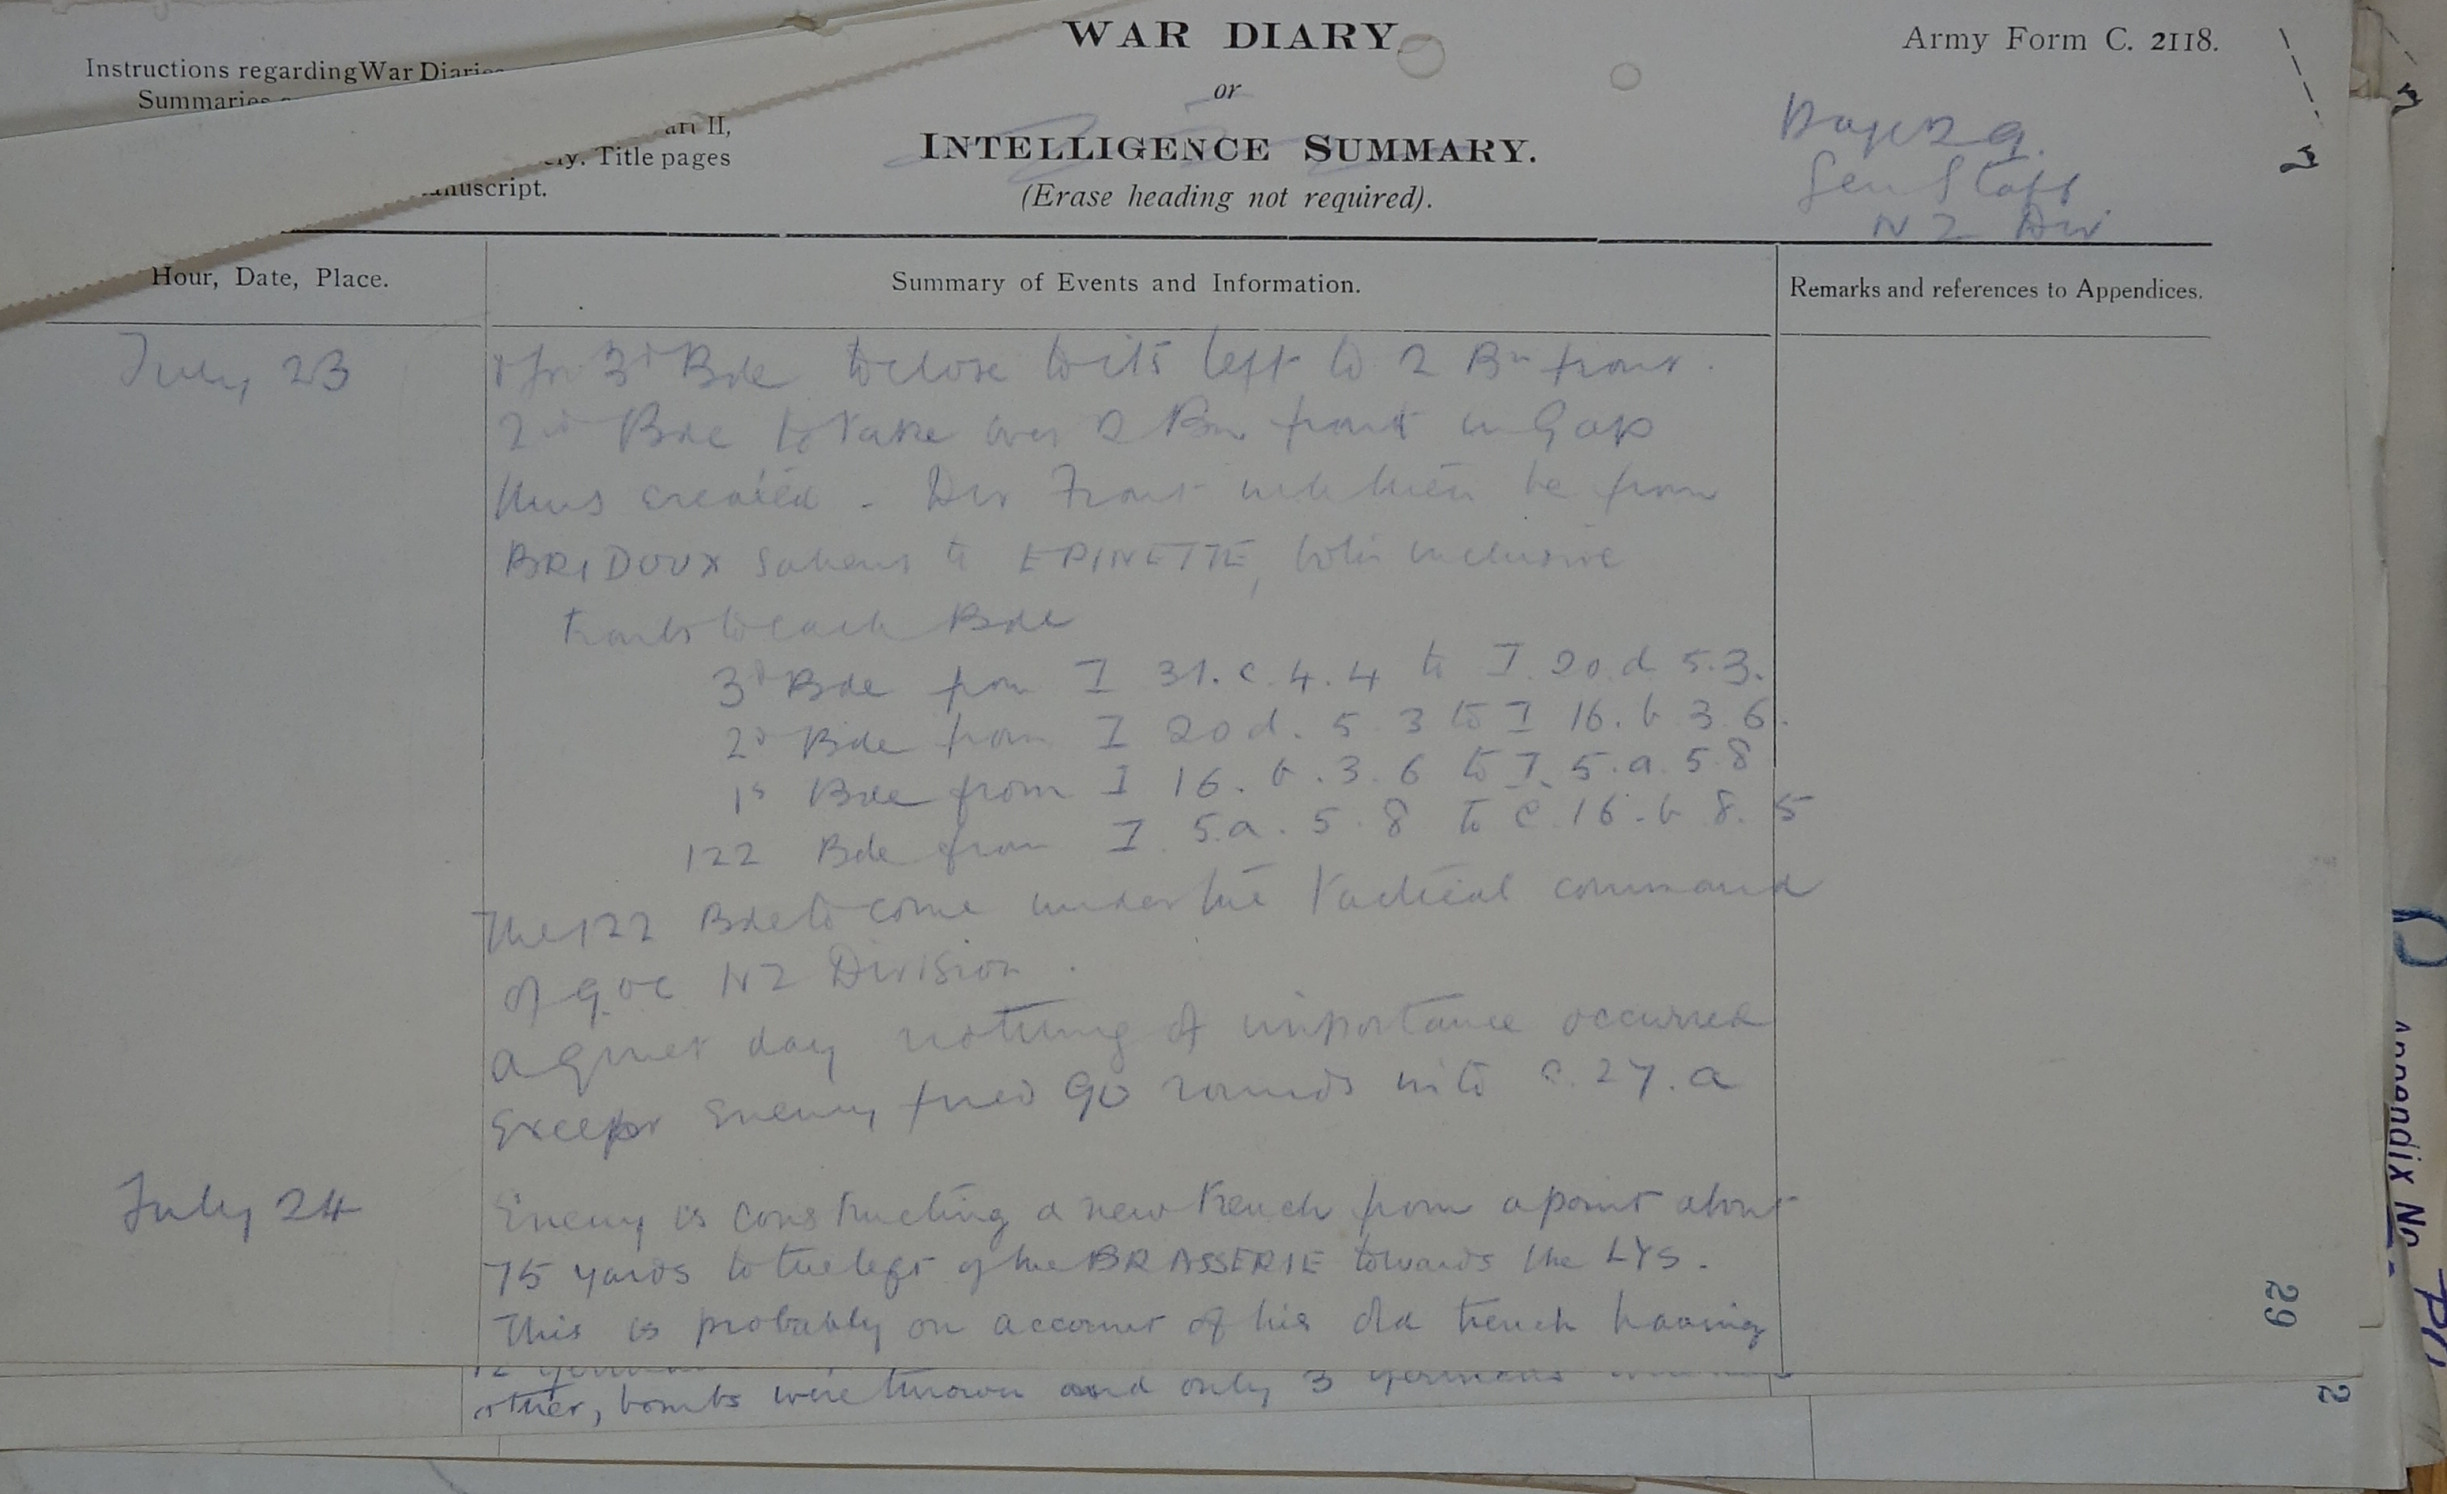 WAR DIARY
or
INTELLIGENCE SUMMARY.
(Erase heading not required).
Army Form C. 2118.
Instructions regarding War Diaries
Summaries
art II,
Title pages
manuscript.
Page 29.
Gen Staff
N Z Div
Hour, Date, Place.
Summary of Events and Information.
Remarks and references to Appendices.
July 23
3d Bde to close to its left to 2 Bn front.
2nd Bde to take over 2 Bn front in Gap
thus created - Div Front will then be from
BRIDOUX Salient to EPINETTE, both inclusive
fronts to each Bde
3d Bde from I 31. c. 4. 4 to I. 20. d 5.3.
2d Bde from I 20 d. 5 3 to I 16. b 3.6.
1s Bde from I 16. b. 3. 6 to I. 5. a. 5 8
122 Bde from I 5.a. 5. 8 to C. 16. b 8. 5
The 122 Bde to come under the tactical command
of GOC NZ Division.
A quiet day nothing of importance occurred
Except Enemy fired 90 rounds into C. 27. a
July 24
Enemy is constructing a new trench from a point about
75 yards to the left of the BRASSERIE towards the LYS.
This is probably on account of his old trench having
other, bombs were thrown and only 3 Germans
29
2
Appendix No